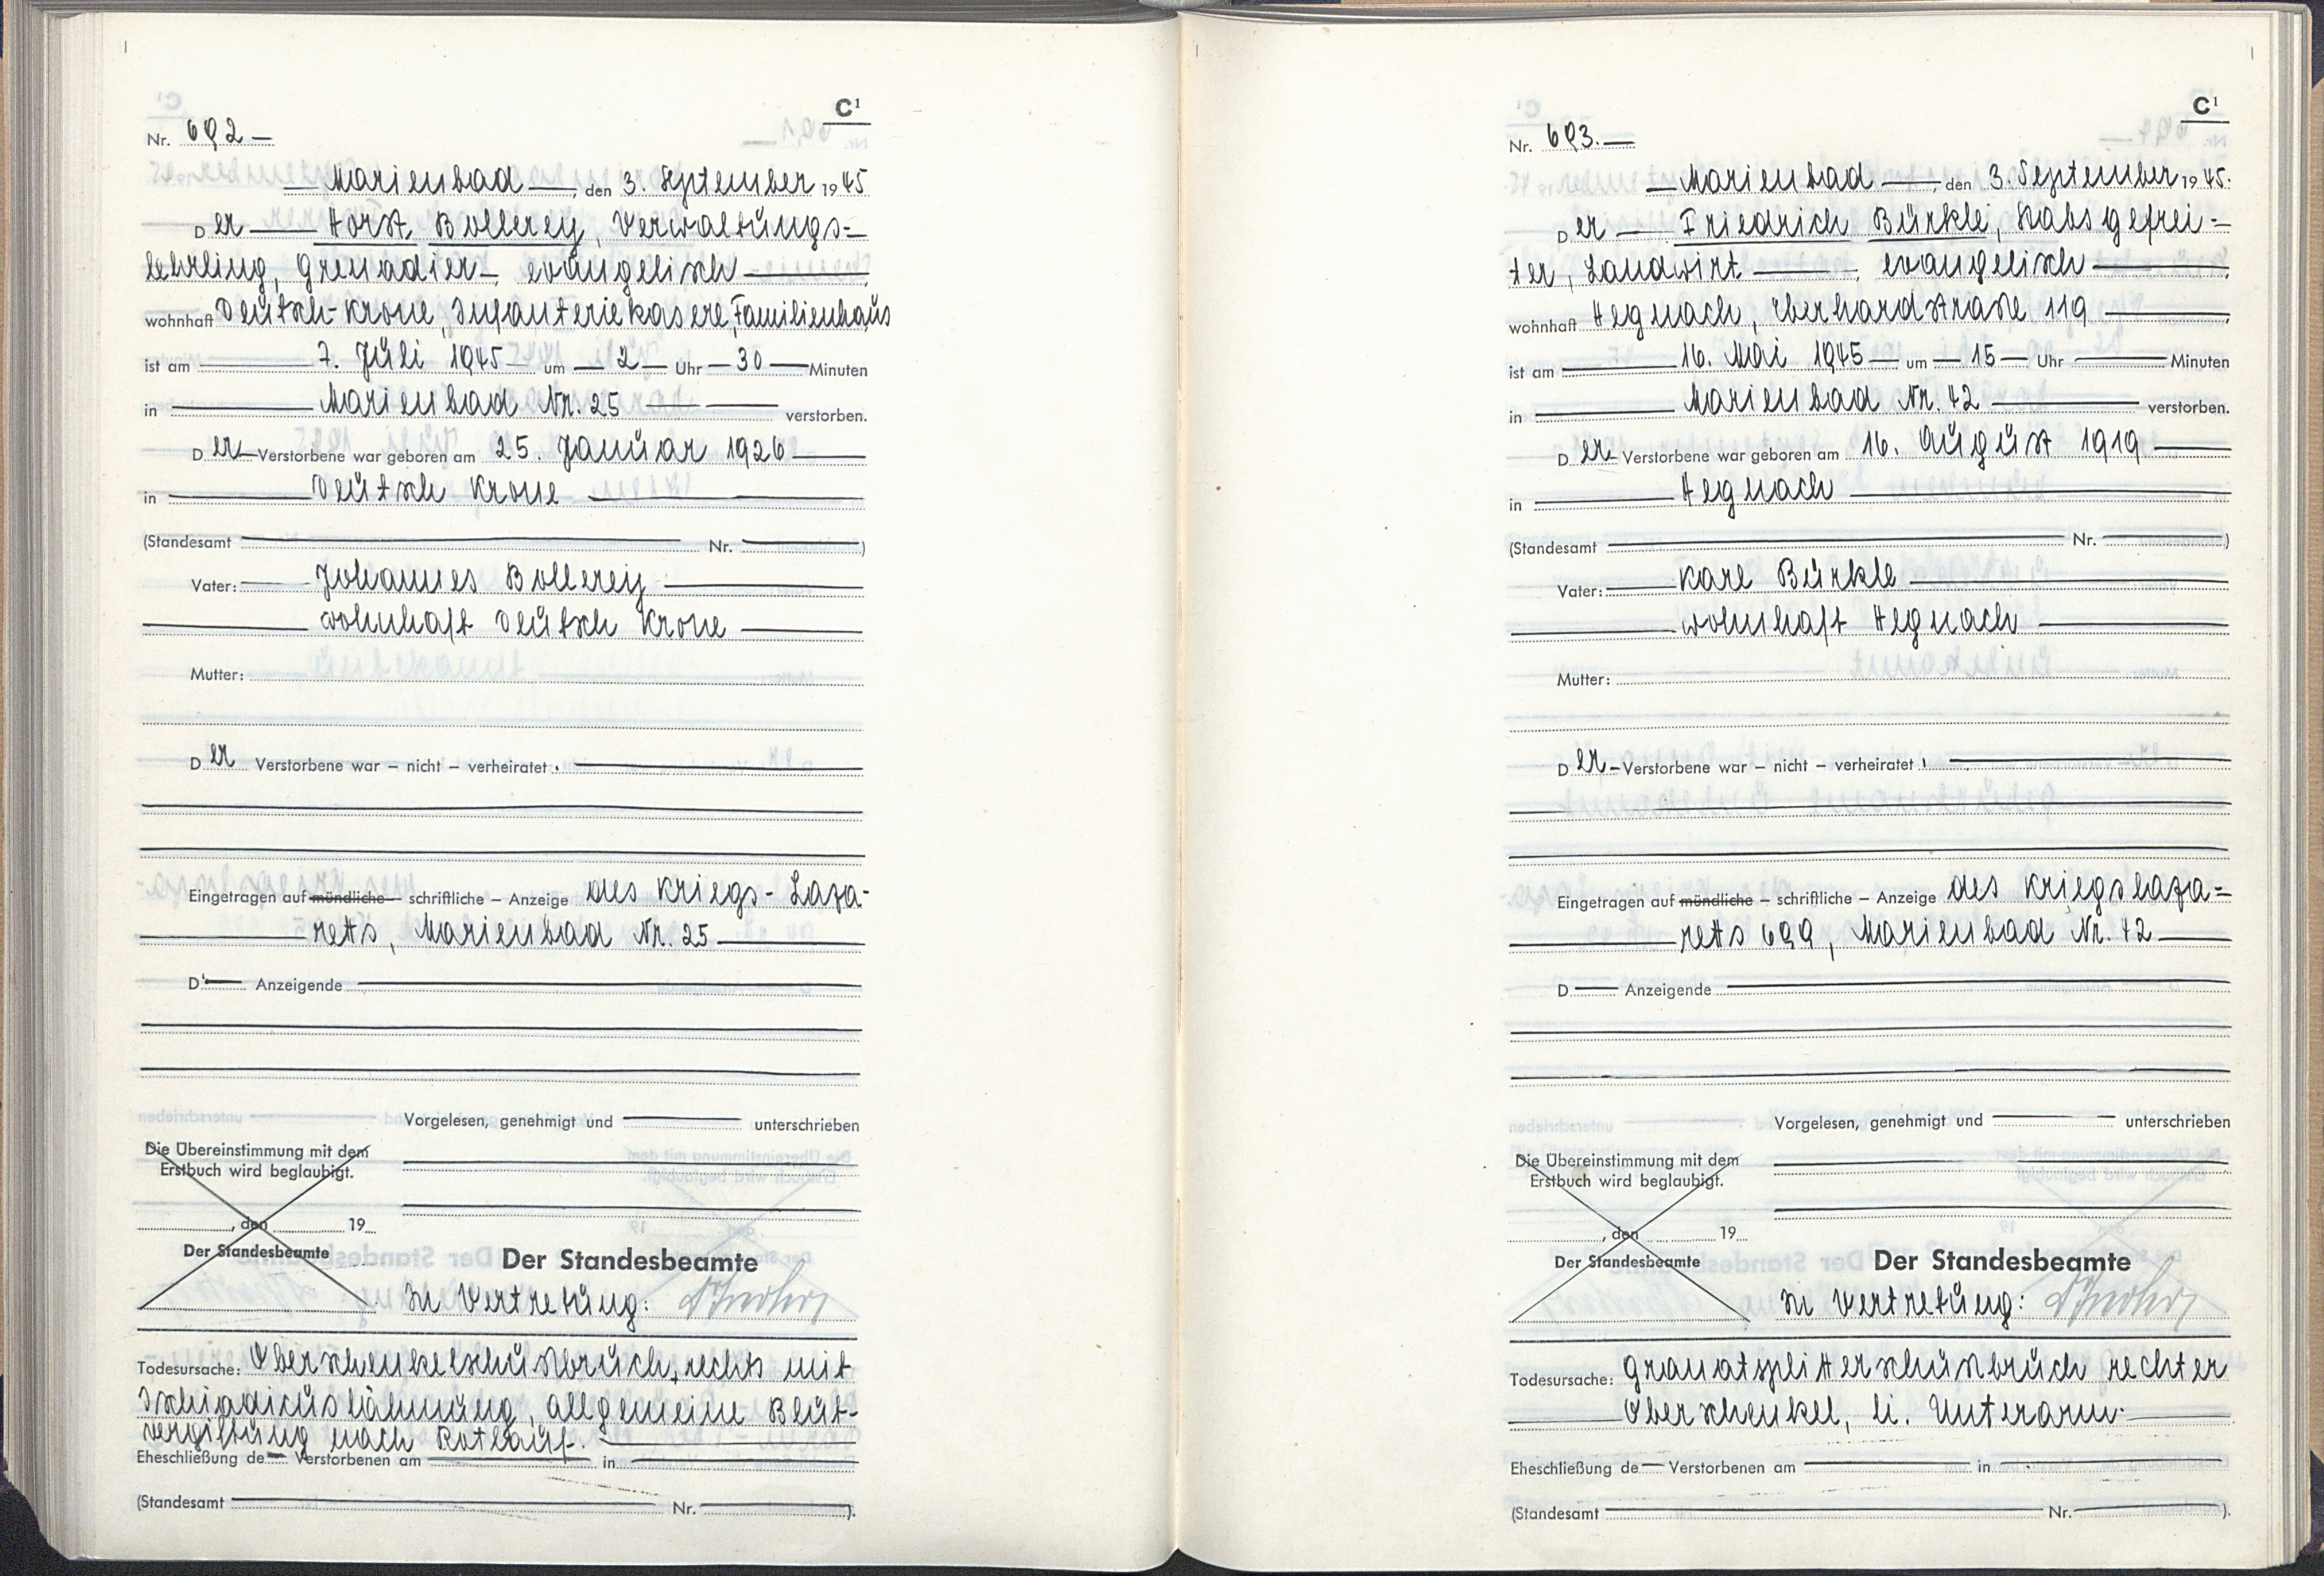 C¹
Nr. 692 —
— Marienbad —, den 3. September 1945
Der — Horst Bollerey, Verwaltungs-
lehrling, Grenadier —, evangelisch —
wohnhaft Deutsch-Krone, Infanteriekasere, Familienhaus
ist am — 7. Juli 1945 — um — 2 — Uhr — 30 — Minuten
in — Marienbad Nr. 25 — verstorben.
Der — Verstorbene war geboren am 25. Januar 1926 —
in — Deutsch Krone —
(Standesamt — Nr. —)
Vater: — Johannes Bollerey —
— wohnhaft Deutsch Krone —
Mutter:
Der Verstorbene war – nicht – verheiratet. —
Eingetragen auf mündliche – schriftliche – Anzeige des Kriegs-Laza-
— retts, Marienbad Nr. 25 —
D — Anzeigende —
Vorgelesen, genehmigt und — unterschrieben
Die Übereinstimmung mit dem
Erstbuch wird beglaubigt.
, den 19
Der Standesbeamte
Der Standesbeamte
In Vertretung:
Todesursache: Oberschenkelschußbruch, rechts mit
Ischiadicuslähmung, allgemeine Blut-
vergiftung nach Rotlauf. —
Eheschließung de — Verstorbenen am — in —
(Standesamt — Nr. —).
C¹
Nr. 693. —
— Marienbad —, den 3. September 1945.
Der — Friedrich Bürkle, Stabsgefrei-
ter, Landwirt —, evangelisch —
wohnhaft Hegnach, Eberhardstraße 119 —
ist am — 16. Mai 1945 — um — 15 — Uhr — Minuten
in — Marienbad Nr. 42 — verstorben.
Der — Verstorbene war geboren am 16. August 1919 —
in — Hegnach —
(Standesamt — Nr. —)
Vater: — Karl Bürkle —
— wohnhaft Hegnach —
Mutter:
Der – Verstorbene war – nicht – verheiratet. —
Eingetragen auf mündliche – schriftliche – Anzeige des Kriegslaza-
— retts 699, Marienbad Nr. 42 —
D — Anzeigende —
Vorgelesen, genehmigt und — unterschrieben
Die Übereinstimmung mit dem
Erstbuch wird beglaubigt.
, den 19
Der Standesbeamte
Der Standesbeamte
In Vertretung:
Todesursache: Granatsplitterschußbruch rechter
— Oberschenkel, li. Unterarm. —
Eheschließung de — Verstorbenen am — in —
(Standesamt — Nr. —).